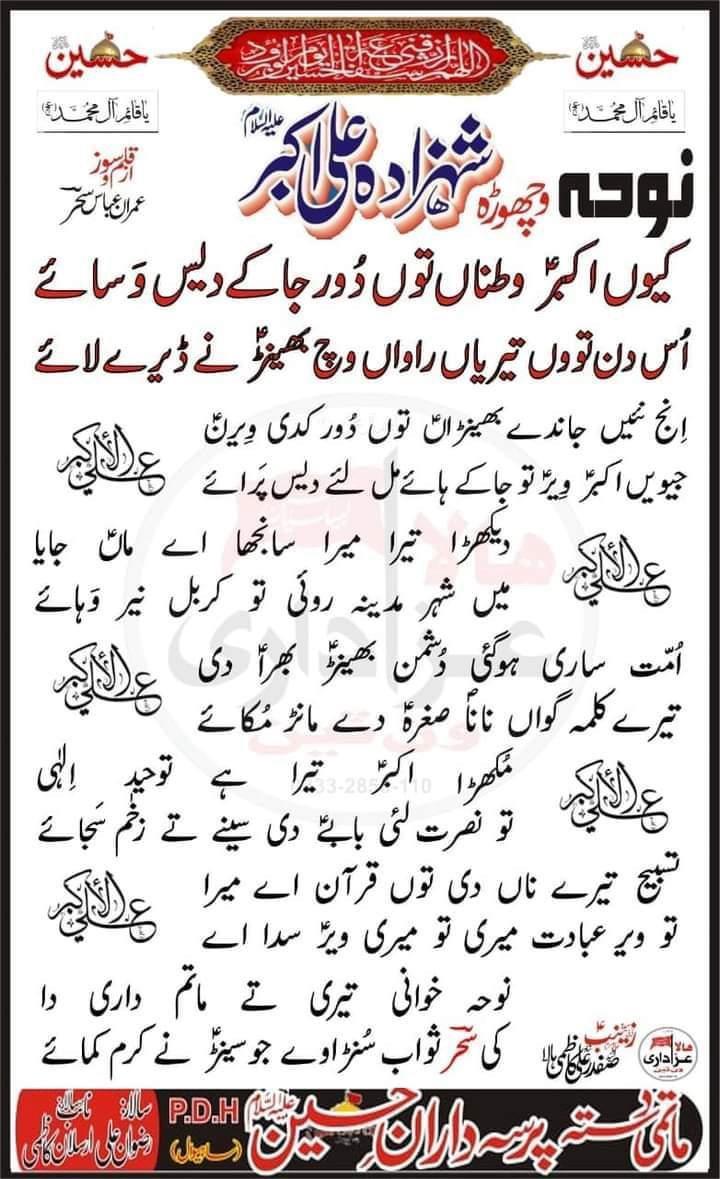 حسین
اللھم ارزقنی شفاعة الحسین یوم الورود
حسین
یا قائم آل محمدؐ (عج)
یا قائم آل محمدؐ (عج)
نوحہ وچھوڑہ شہزادہ علی اکبر علیہ السلام
از قلم و سوز
عمران عباس سحرؔ
کیوں اکبرؑ وطناں توں دُور جا کے دیس وَسائے
اُس دن توں تیریاں راواں وچ بھینڑؑ نے ڈیرے لائے
اِنج نئیں جاندے بھینڑاںؑ توں دُور کدی ویرنؑ
جیویں اکبرؑ ویرؑ تو جا کے ہائے مل لئے دیس پَرائے
علی الاکبر
دیکھڑا تیرا میرا سانجھا اے ماںؑ جایا
میں شہر مدینہ روئی تو کربل نیر وَہائے
علی الاکبر
اُمّت ساری ہوگئی دُشمن بھینڑؑ بھراؑ دی
تیرے کلمہ گواں ناناؐ صغرہؑ دے مانڑ مُکائے
علی الاکبر
مُکھڑا اکبرؑ تیرا ہے توحید اِلٰہی
تو نصرت لئی بابےؑ دی سینے تے زخم سَجائے
علی الاکبر
تسبیح تیرے ناں دی توں قرآن اے میرا
تو ویر عبادت میری تو میری ویرؑ سدا اے
علی الاکبر
نوحہ خوانی تیری تے ماتم داری دا
کی سحرؔ ثواب سُنڑاوے جو سینڑؑ نے کرم کمائے
زینبؑ
صفدر علی کاظمی ہالا
ہالا
عزاداری
ماتمی دستہ پرسہ دارانِ حسین علیہ السلام
P.D.H
(ساہیوال)
سالار: نائب سالار:
رضوان علی ارسلان کاظمی
ہالا
عزاداری